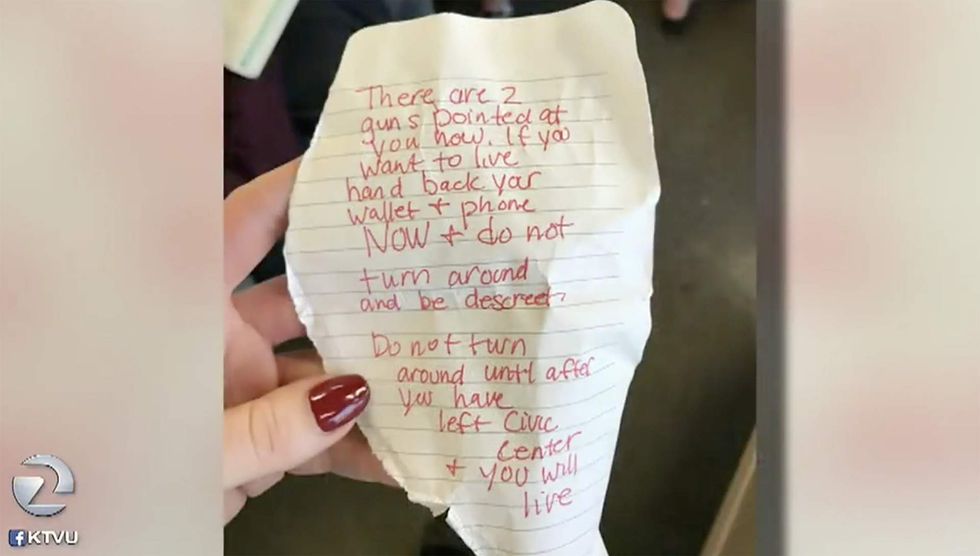 There are 2
guns pointed at
you now. If you
want to live
hand back your
wallet + phone
NOW + do not
turn around
and be descreet.
Do not turn
around until after
you have
left Civic
Center
+ you will
live
2
f KTVU